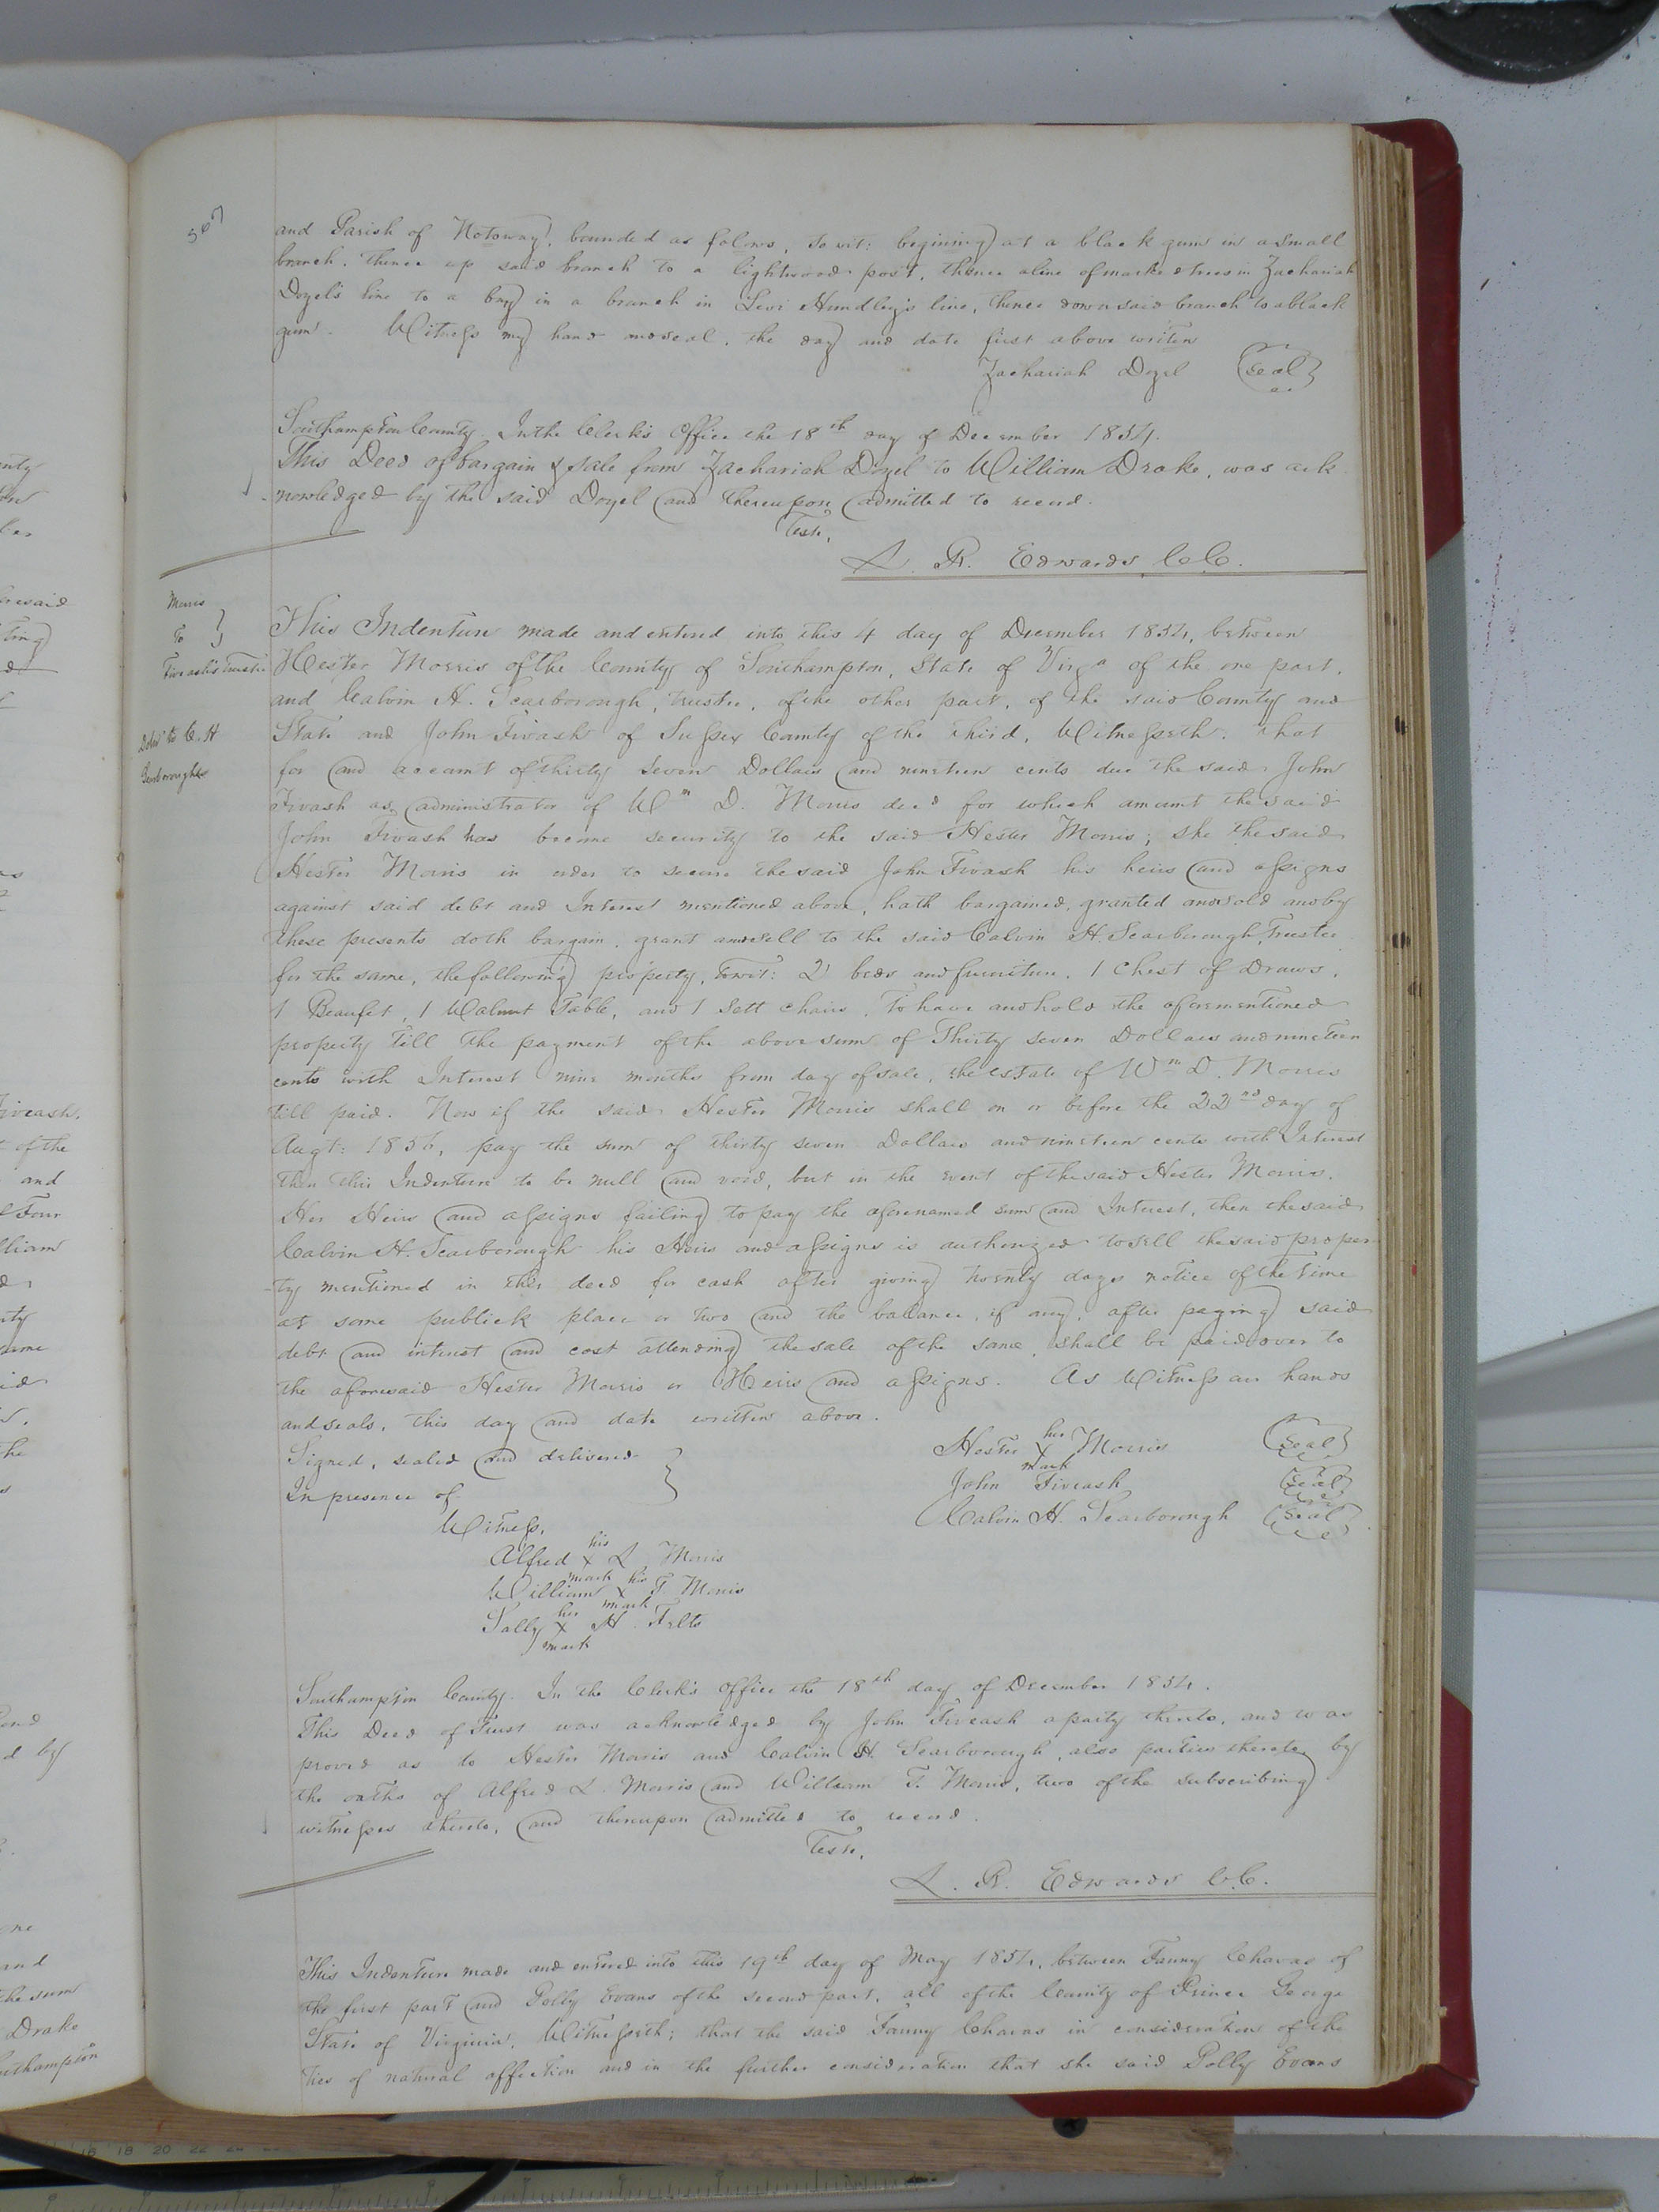 and Parish of Notoway, bounded as folows, to wit: begining at a black gum in a small
branch, thence up said branch to a lightwood post, thence a line of marked trees in Zachariah
Dozel's line to a bay in a branch in Levi Hundley's line, thence down said branch to a black
gum. Witness my hand and seal, the day and date first above writen
Zachariah Dozel Seal
Southampton County. In the Clerk's Office the 18th day of December 1854.
This Deed of bargain & sale from Zachariah Dozel to William Drake, was ack
-nowledged by the said Dozel and thereupon admitted to record.
Teste,
L. R. Edwards C.C.
Morris
To
Fiveash's Trustee
Deld to C. H
Scarborough
This Indenture made and entered into this 4 day of December 1854, between
Hester Morris of the County of Southampton, State of Virga of the one part,
and Calvin H. Scarborough, trustee, of the other part, of the said County and
State and John Fivash of Sussex County of the third, Witnesseth: that
for and account of thirty seven Dollars and nineteen cents due the said John
Fivash as administrator of Wm D. Morris decd for which amount the said
John Fivash has become security to the said Hester Morris; she the said
Hester Morris in order to secure the said John Fivash his heirs and assigns
against said debt and Interest mentioned above, hath bargained, granted and sold and by
these presents doth bargain, grant and sell to the said Calvin H. Scarborough, Trustee
for the same, the following property, towit: 2 beds and furniture, 1 Chest of Draws,
1 Beaufet, 1 Walnut Table, and 1 Sett chairs, To have and hold the aforementioned
property till the payment of the above sum of Thirty seven Dollars and nineteen
cents with Interest nine months from day of sale, the estate of Wm D. Morris
till paid. Now if the said Hester Morris shall on or before the 22nd day of
Augt: 1856, pay the sum of thirty seven Dollars and nineteen cents with Interest
then this Indenture to be null and void, but in the event of the said Hester Morris.
Her Heirs and assigns failing to pay the aforenamed sum and Interest, then the said
Calvin H. Scarborough his Heirs and assigns is authorized to sell the said proper
-ty mentioned in this deed for cash after giving twenty days notice of the time
at some publick place or two and the ballance, if any, after paying said
debt and interest and cost attending the sale of the same, shall be paid over to
the aforesaid Hester Morris or Heirs and assigns. As Witness our hands
and seals, this day and date written above.
Signed, sealed and delivered
In presence of
Hester her X mark Morris Seal
John Fiveash Seal
Calvin H. Scarborough Seal
Witness,
Alfred his X mark L. Morris
William his X mark T. Morris
Sally her X mark H. Felts
Southampton County. In the Clerk's Office the 18th day of December 1854.
This Deed of Trust was acknowledged by John Fiveash a party thereto, and was
proved as to Hester Morris and Calvin H. Scarborough, also parties thereto by
the oaths of Alfred L. Morris and William T. Morris, two of the subscribing
witnesses thereto, and thereupon admitted to record.
Teste,
L. R. Edwards C.C.
This Indenture made and entered into this 19th day of May 1854, between Fanny Chavas of
the first part and Polly Evans of the second part, all of the County of Prince George
State of Virginia, Witnesseth; that the said Fanny Chavas in consideration of the
ties of natural affection and in the further consideration that she said Polly Evans